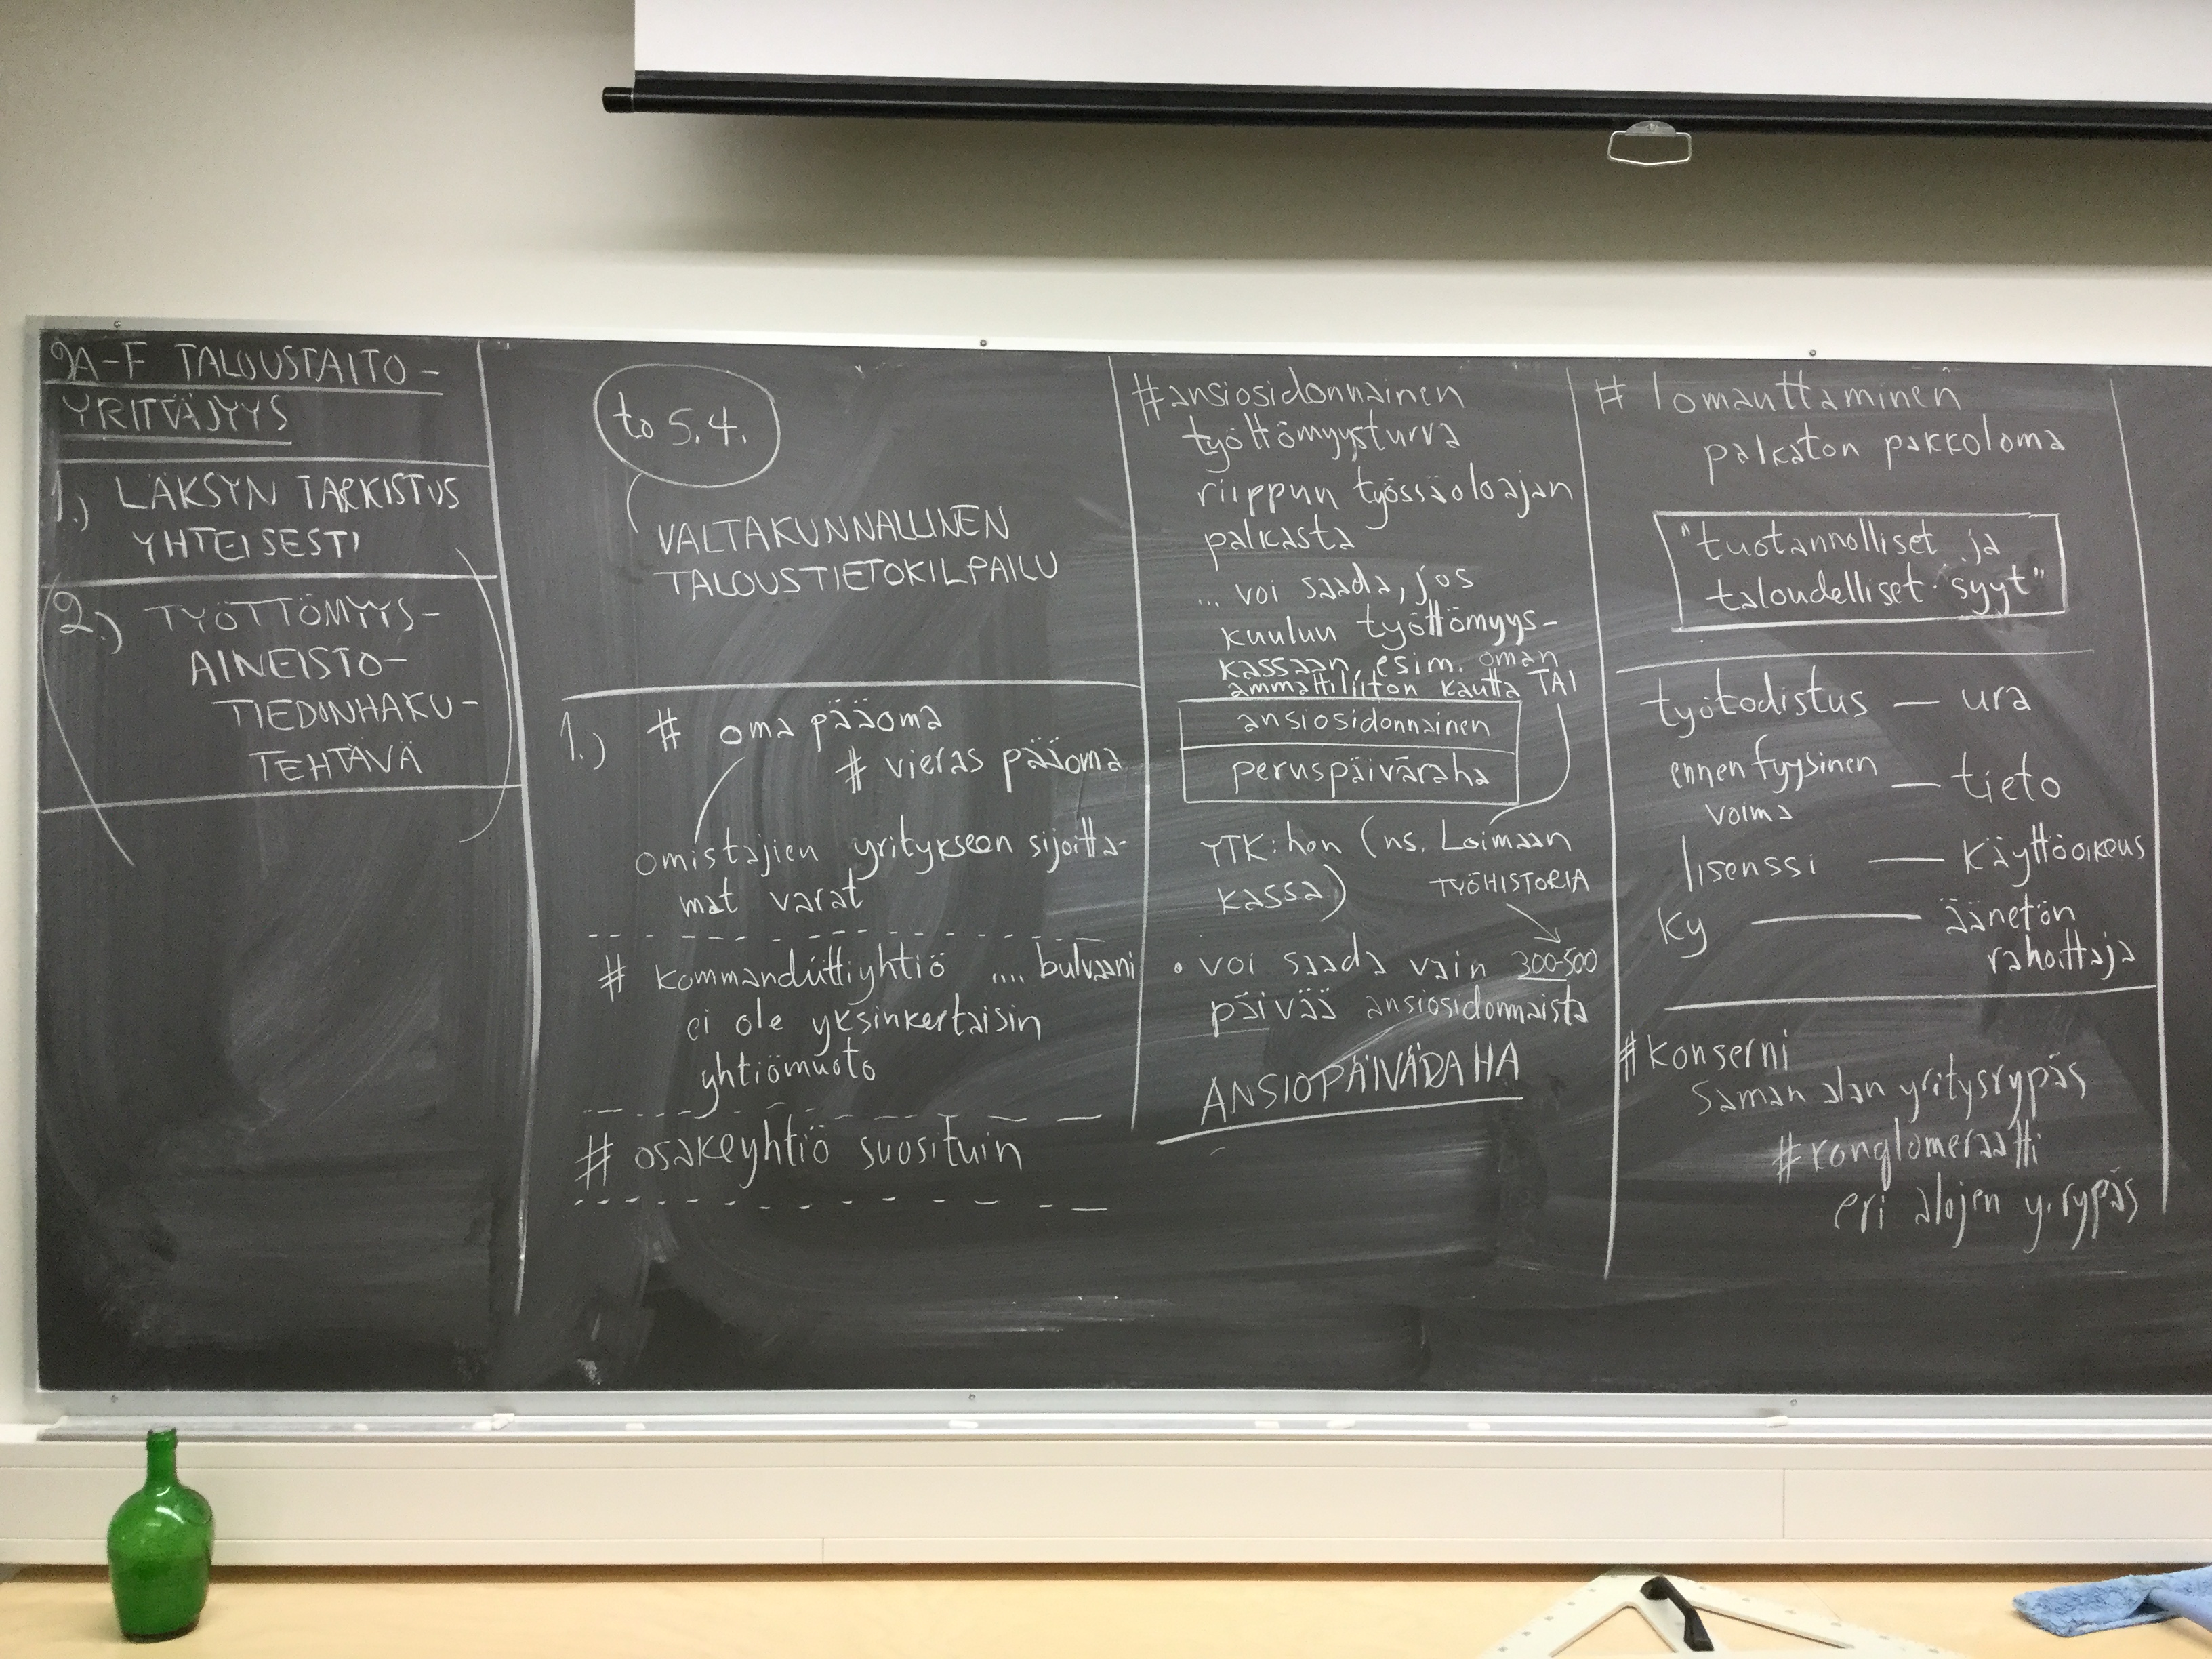 9A-F TALOUSTAITO-
YRITTÄJYYS
1.) LÄKSYN TARKISTUS
YHTEISESTI
2.) TYÖTTÖMYYS-
AINEISTO-
TIEDONHAKU-
TEHTÄVÄ
to 5.4.
VALTAKUNNALLINEN
TALOUSTIETOKILPAILU
1.) # oma pääoma
# vieras pääoma
omistajien yritykseen sijoitta-
mat varat
# kommandiittiyhtiö .... bulvaani
ei ole yksinkertaisin
yhtiömuoto
# osakeyhtiö suosituin
#ansiosidonnainen
työttömyysturva
riippuu työssäoloajan
palkasta
... voi saada, jos
kuuluu työttömyys-
kassaan, esim. oman
ammattiliiton kautta TAI
ansiosidonnainen
peruspäiväraha
YTK:hon (ns. Loimaan
kassa)
TYÖHISTORIA
• voi saada vain 300-500
päivää ansiosidonnaista
ANSIOPÄIVÄRAHA
# lomauttaminen
palkaton pakkoloma
"tuotannolliset ja
taloudelliset syyt"
työtodistus — ura
ennen fyysinen
voima — tieto
lisenssi — käyttöoikeus
Ky — äänetön
rahoittaja
#konserni
saman alan yritysrypäs
#konglomeraatti
eri alojen y.rypäs